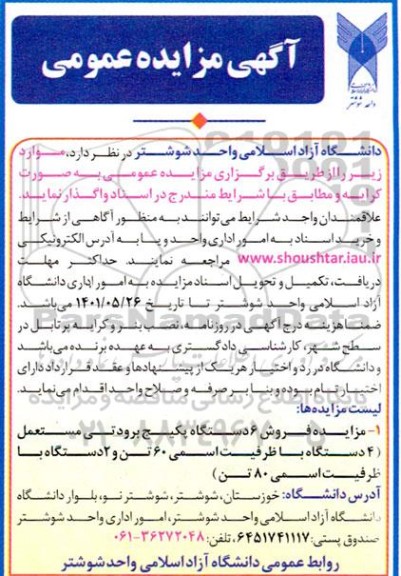 آگهی مزایده عمومی
واحد شوشتر
دانشگاه آزاد اسلامی واحد شوشتر در نظر دارد، موارد
زیر را از طریق برگزاری مزایده عمومی به صورت
کرایه و مطابق با شرایط مندرج در اسناد واگذار نماید.
علاقمندان واجد شرایط می‌توانند به منظور آگاهی از شرایط
و خرید اسناد به امور اداری واحد و یا به آدرس الکترونیکی
www.shoushtar.iau.ir مراجعه نمایند. حداکثر مهلت
دریافت، تکمیل و تحویل اسناد مزایده به امور اداری دانشگاه
آزاد اسلامی واحد شوشتر تا تاریخ ۱۴۰۱/۰۵/۲۶ می‌باشد.
ضمنا هزینه درج آگهی در روزنامه، نصب بنر و کرایه پرتابل در
سطح شهر، کارشناسی دادگستری به عهده برنده می‌باشد
و دانشگاه در رد و اختیار هر یک از پیشنهادها و عقد قرارداد دارای
اختیار تام بوده و بنا بر صرفه و صلاح واحد اقدام می‌نماید.
لیست مزایده‌ها:
۱- مزایده فروش ۶ دستگاه پکیج برودتی مستعمل
(۴ دستگاه با ظرفیت اسمی ۶۰ تن و ۲ دستگاه با
ظرفیت اسمی ۸۰ تن)
آدرس دانشگاه: خوزستان، شوشتر، شوشتر نو، بلوار دانشگاه
دانشگاه آزاد اسلامی واحد شوشتر، امور اداری واحد شوشتر
صندوق پستی: ۶۴۵۱۷۴۱۱۱۷، تلفن: ۳۶۲۷۲۰۴۸-۰۶۱
روابط عمومی دانشگاه آزاد اسلامی واحد شوشتر
ParsNamadData